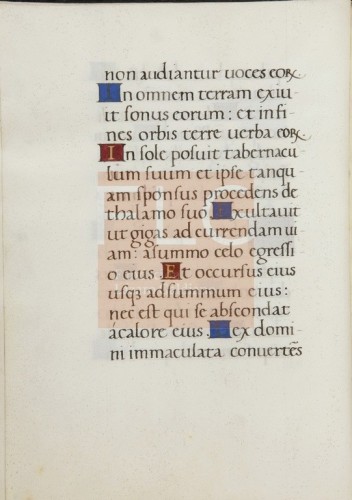 non audiantur uoces eoꝝ
In omnem terram exiu
it sonus eorum: et in fi
nes orbis terre uerba eoꝝ
In sole posuit tabernacu
lum suum et ipse tanqu
am sponsus procedens de
thalamo suo. Exultauit
ut gigas ad currendam ui
am: asummo celo egressi
o eius. Et occursus eius
usqꝫ ad summum eius:
nec est qui se abscondat
acalore eius. Lex domi
ni immaculata conuertēs